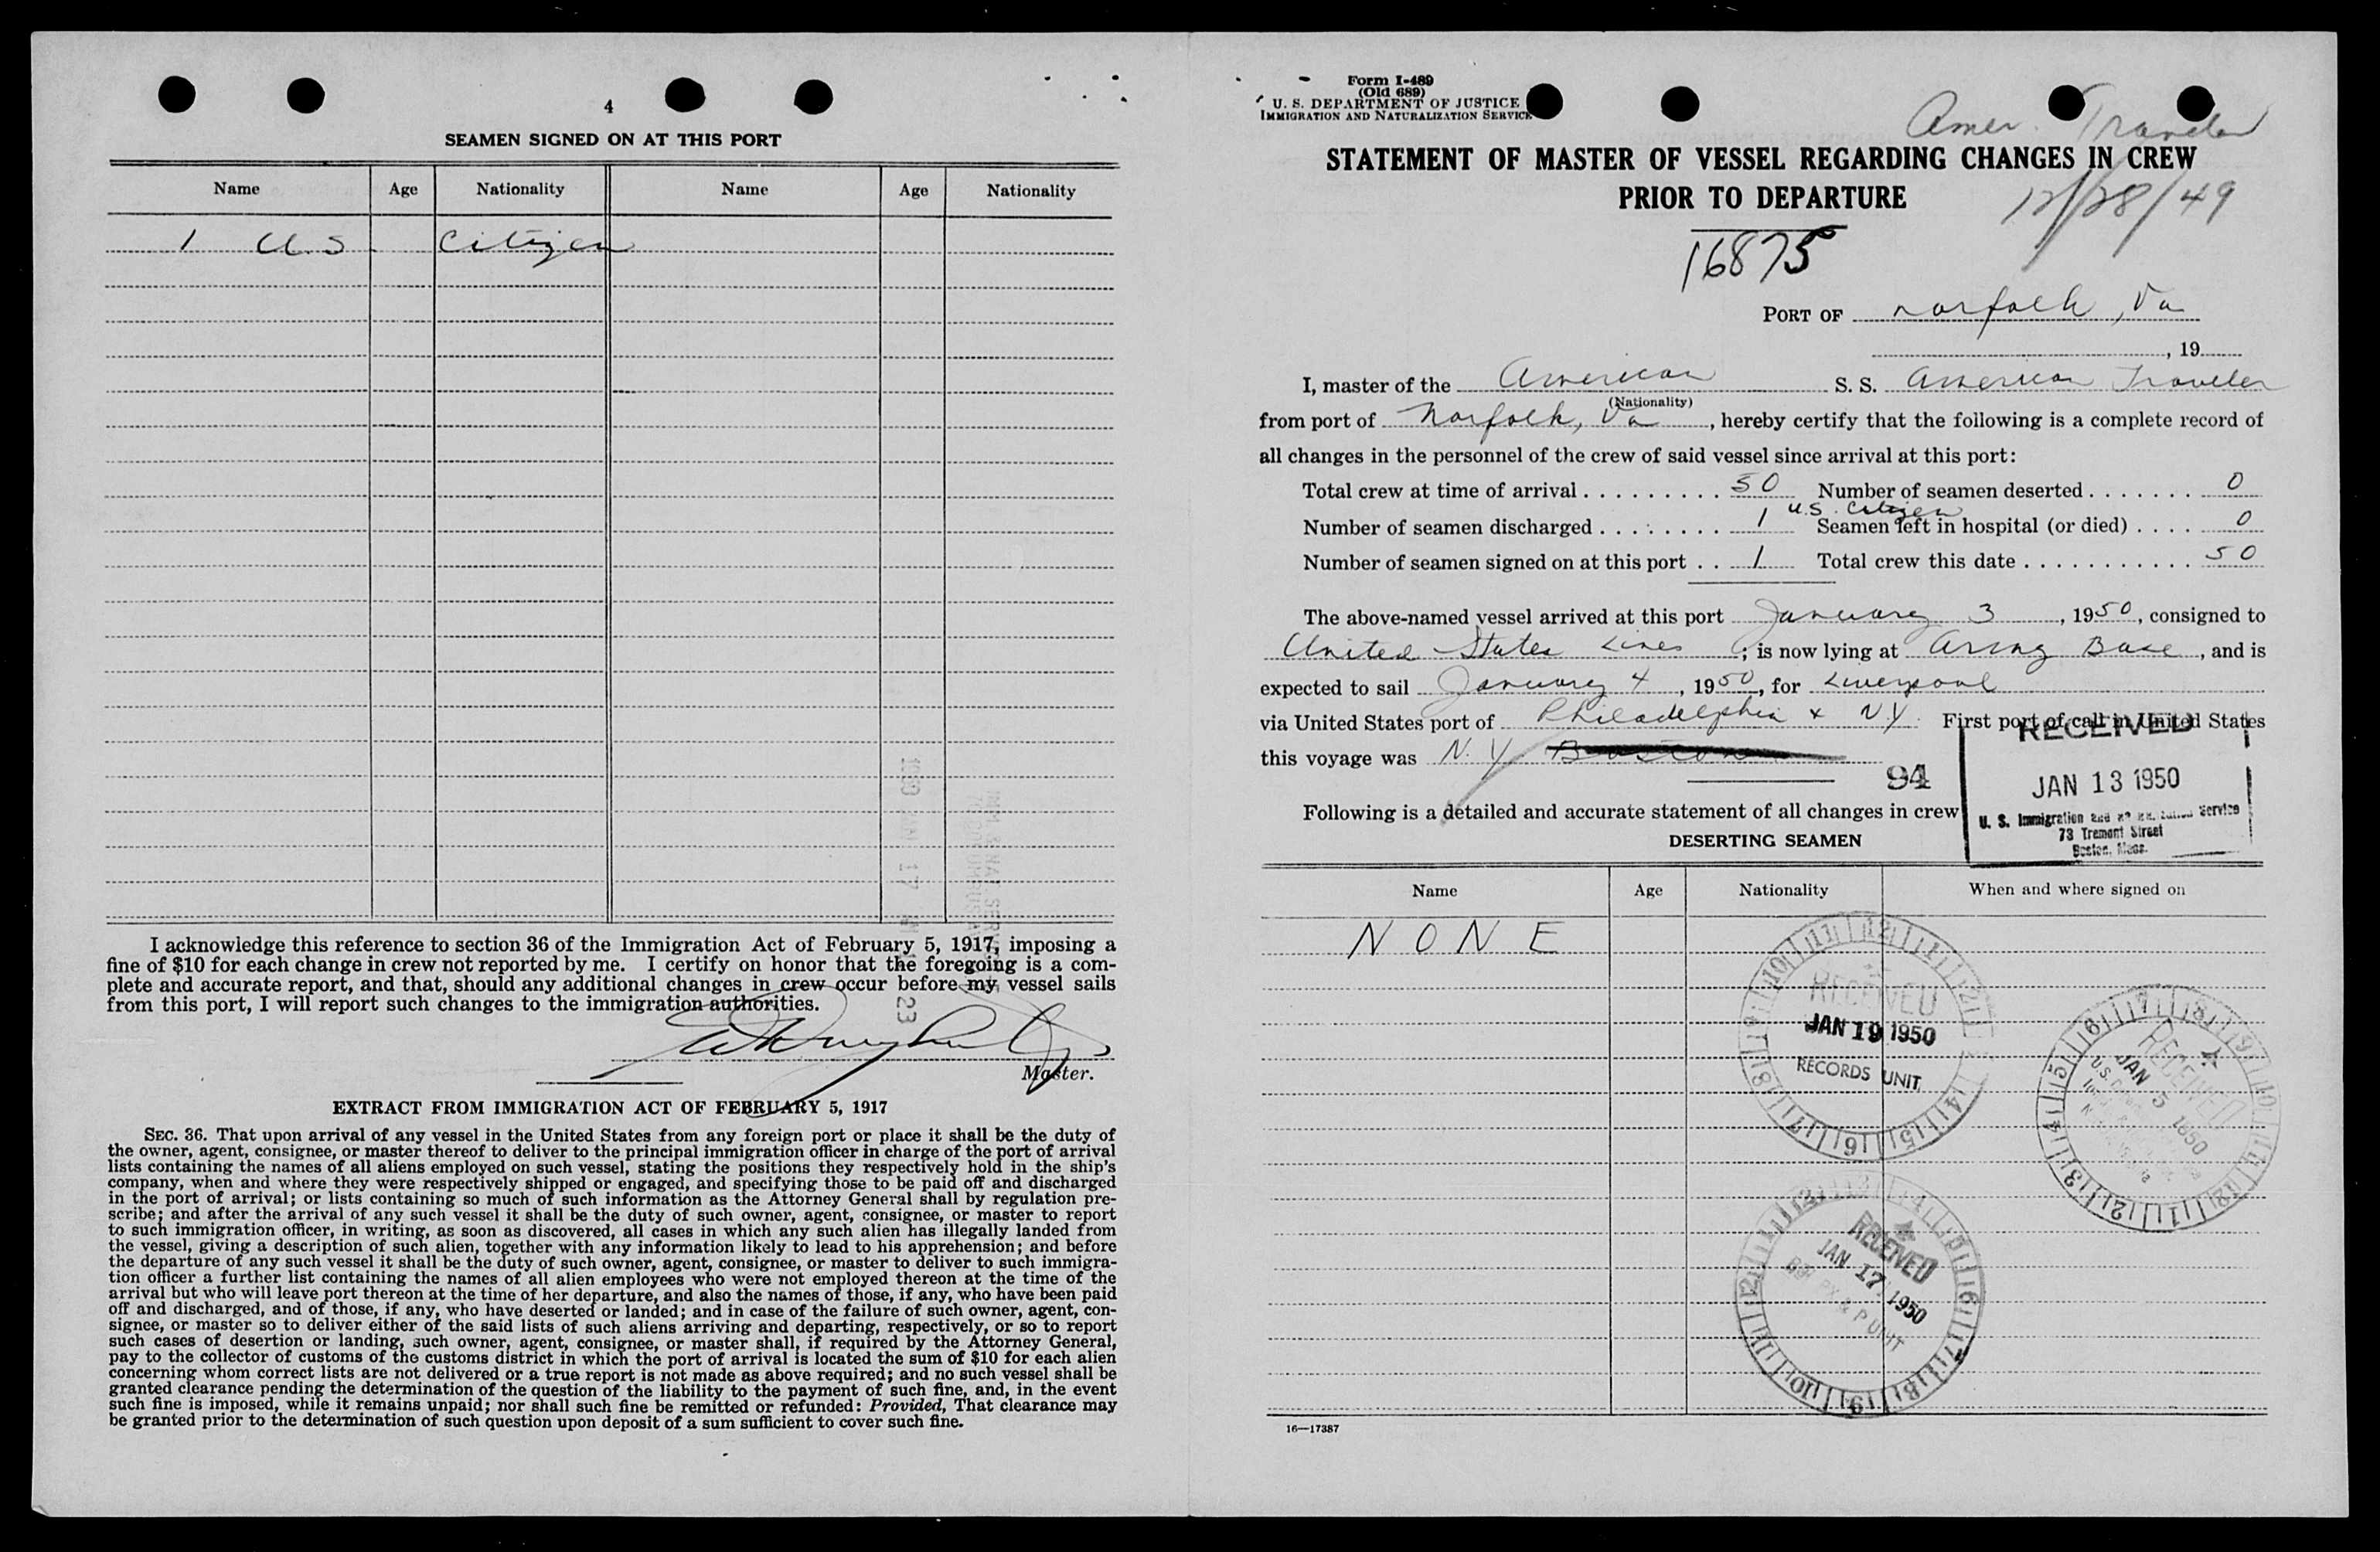 4
SEAMEN SIGNED ON AT THIS PORT
Name Age Nationality Name Age Nationality
1 U.S. Citizen
I acknowledge this reference to section 36 of the Immigration Act of February 5, 1917, imposing a
fine of $10 for each change in crew not reported by me. I certify on honor that the foregoing is a com-
plete and accurate report, and that, should any additional changes in crew occur before my vessel sails
from this port, I will report such changes to the immigration authorities.
Master.
EXTRACT FROM IMMIGRATION ACT OF FEBRUARY 5, 1917
SEC. 36. That upon arrival of any vessel in the United States from any foreign port or place it shall be the duty of
the owner, agent, consignee, or master thereof to deliver to the principal immigration officer in charge of the port of arrival
lists containing the names of all aliens employed on such vessel, stating the positions they respectively hold in the ship's
company, when and where they were respectively shipped or engaged, and specifying those to be paid off and discharged
in the port of arrival; or lists containing so much of such information as the Attorney General shall by regulation pre-
scribe; and after the arrival of any such vessel it shall be the duty of such owner, agent, consignee, or master to report
to such immigration officer, in writing, as soon as discovered, all cases in which any such alien has illegally landed from
the vessel, giving a description of such alien, together with any information likely to lead to his apprehension; and before
the departure of any such vessel it shall be the duty of such owner, agent, consignee, or master to deliver to such immigra-
tion officer a further list containing the names of all alien employees who were not employed thereon at the time of the
arrival but who will leave port thereon at the time of her departure, and also the names of those, if any, who have been paid
off and discharged, and of those, if any, who have deserted or landed; and in case of the failure of such owner, agent, con-
signee, or master so to deliver either of the said lists of such aliens arriving and departing, respectively, or so to report
such cases of desertion or landing, such owner, agent, consignee, or master shall, if required by the Attorney General,
pay to the collector of customs of the customs district in which the port of arrival is located the sum of $10 for each alien
concerning whom correct lists are not delivered or a true report is not made as above required; and no such vessel shall be
granted clearance pending the determination of the question of the liability to the payment of such fine, and, in the event
such fine is imposed, while it remains unpaid; nor shall such fine be remitted or refunded: Provided, That clearance may
be granted prior to the determination of such question upon deposit of a sum sufficient to cover such fine.
Form I-489
(Old 689)
U. S. DEPARTMENT OF JUSTICE
IMMIGRATION AND NATURALIZATION SERVICE
Amer. Traveler
STATEMENT OF MASTER OF VESSEL REGARDING CHANGES IN CREW
PRIOR TO DEPARTURE
12/28/49
16875
PORT OF Norfolk, Va
, 19
I, master of the American S. S. American Traveler
(Nationality)
from port of Norfolk, Va , hereby certify that the following is a complete record of
all changes in the personnel of the crew of said vessel since arrival at this port:
Total crew at time of arrival 50 Number of seamen deserted 0
Number of seamen discharged 1 U.S. Citizen Seamen left in hospital (or died) 0
Number of seamen signed on at this port 1 Total crew this date 50
The above-named vessel arrived at this port January 3, 1950, consigned to
United States Lines ; is now lying at Army Base, and is
expected to sail January 4, 1950, for Liverpool
via United States port of Philadelphia & N.Y. First port of call in United States
this voyage was N.Y. Boston
94
RECEIVED
JAN 13 1950
U. S. Immigration and Service
73 Tremont Street
Boston, Mass.
Following is a detailed and accurate statement of all changes in crew
DESERTING SEAMEN
Name Age Nationality When and where signed on
NONE
RECEIVED
JAN 19 1950
RECORDS UNIT
RECEIVED
JAN 5 1950
RECEIVED
JAN 17 1950
P UNIT
16—17387